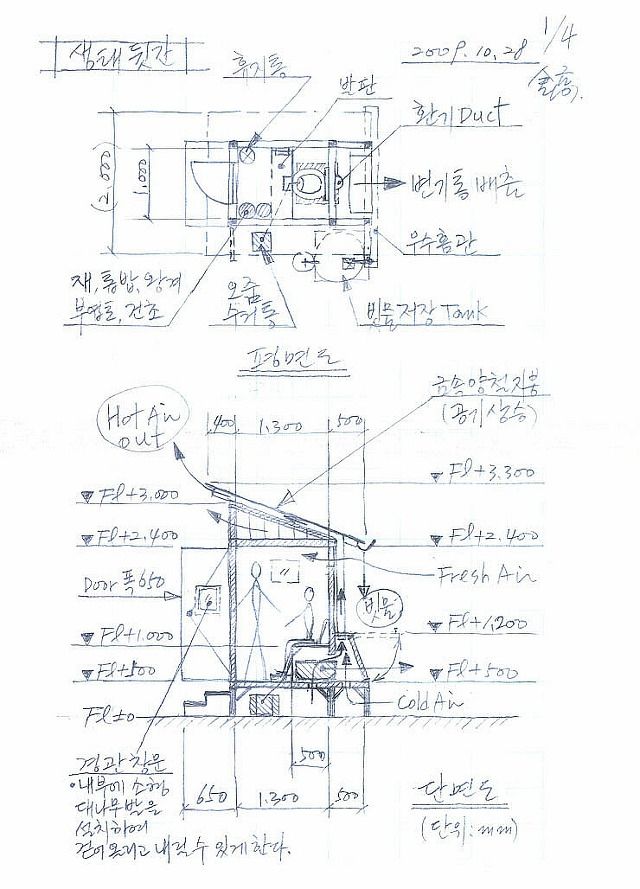 생태 뒷간
2009. 10. 28
1/4
휴지통
발판
환기 Duct
변기통 배출
우수홈관
(2.000)
1.000
재, 톱밥, 왕겨
부엽토, 건초
오줌
수거통
빗물저장 Tank
평면도
Hot Air
out
400
1.300
500
금속 양철지붕
(공기상승)
Fl+3.300
Fl+3.000
Fl+2.400
Fl+2.400
Door 폭 650
Fresh Air
빗물
Fl+1,200
Fl+1.000
Fl+500
Fl+500
Fl±0
Cold Air
500
650
1.300
500
경관창문
• 내부에 소형
대나무발을
설치하여
걷어올리고 내릴 수 있게 한다.
단면도
(단위:mm)